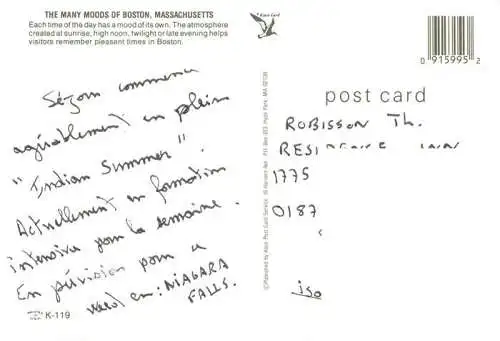 THE MANY MOODS OF BOSTON, MASSACHUSETTS
Each time of the day has a mood of its own. The atmosphere
created at sunrise, high noon, twilight or late evening helps
visitors remember pleasant times in Boston.
Séjour commence
agréablement en plein
"Indian Summer".
Actuellement en formation
intensive pour la semaine.
En prévision pour le
week en: NIAGARA
FALLS.
K-119
0 915995 2
post card
ROBISSON Th.
RESIDENCE
1775
0187